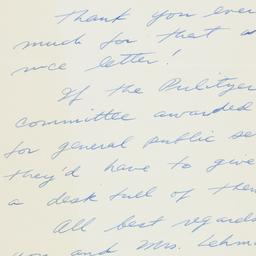 Thank you ever
much for that
nice letter!
If the Pulitzer
committee awarded
for general public se
they'd have to give
a desk full of them
All best regards
you and Mrs. Lehm